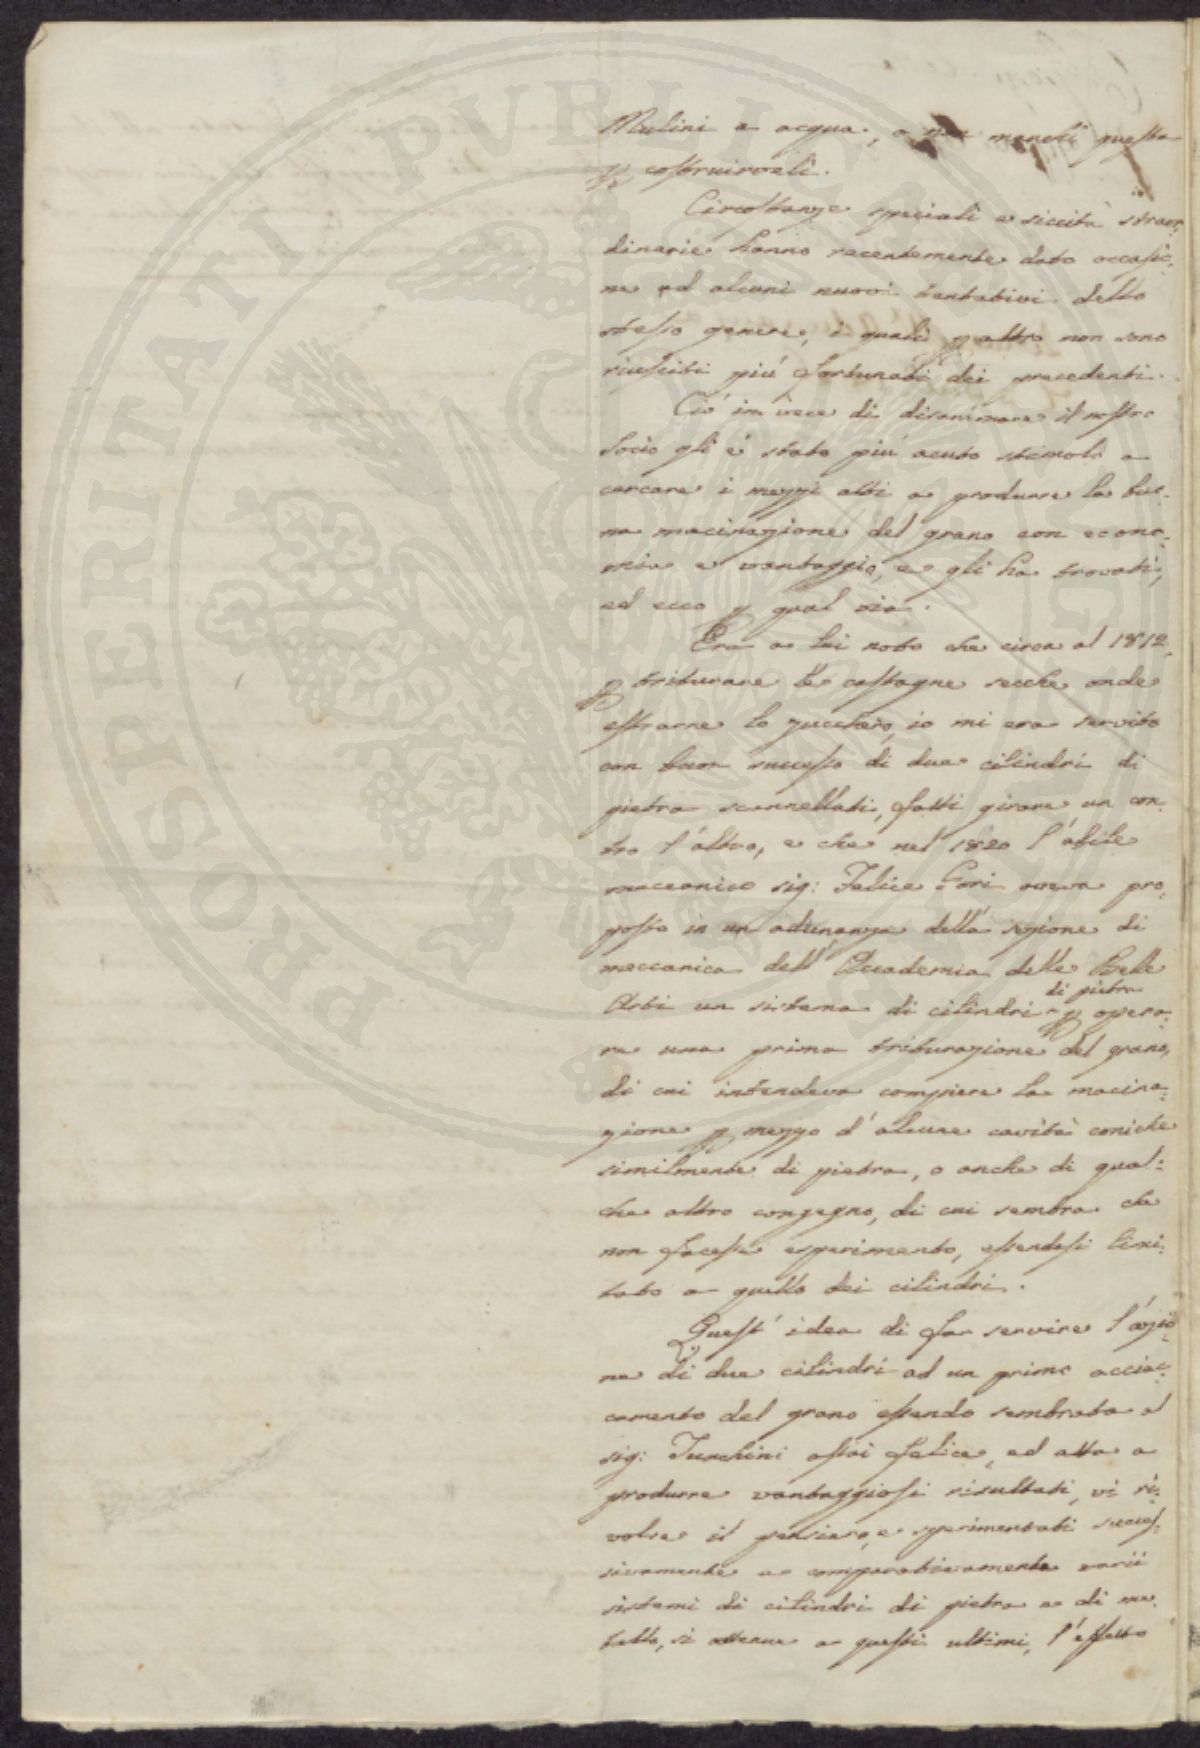 Mulini a acqua, o manchi questa
p costruirveli.
Circostanze speciali e siccità straor=
dinarie hanno recentemente dato occasio=
ne ad alcuni nuovi tentativi dello
stesso genere, i quali p altro non sono
riusciti più fortunati dei precedenti.
Ciò in vece di disanimare il nostro
socio gli è stato più acuto stimolo a
cercare i mezzi atti a produrre la buo=
na macinazione del grano con econo=
mia e vantaggio, e gli ha trovati,
ed ecco p qual via.
Era a lui noto che circa al 1812,
p triturare le castagne secche onde
estrarne lo zucchero, io mi era servito
con buon successo di due cilindri di
pietra scannellati, fatti girare un con=
tro l'altro, e che nel 1820 l'abile
meccanico sig: Felice Gori aveva pro=
posto in un adunanza della sezione di
meccanica dell'Accademia delle Belle
Arti un sistema di cilindri di pietra p opera=
re una prima triturazione del grano,
di cui intendeva compiere la macina=
zione p mezzo d'alcune cavità coniche
similmente di pietra, o anche di qual=
che altro congegno, di cui sembra che
non facesse esperimento, essendosi limi=
tato a quello dei cilindri.
Quest'idea di far servire l'azio=
ne di due cilindri ad un primo acciac=
camento del grano essendo sembrata al
sig: Turchini assai felice, ed atta a
produrre vantaggiosi risultati, vi ri=
volse il pensiero, e sperimentati succes=
sivamente e comparativamente varii
sistemi di cilindri di pietra e di me=
tallo, si attenne a questi ultimi, l'effetto
PROSPERITATI PVBLICAE